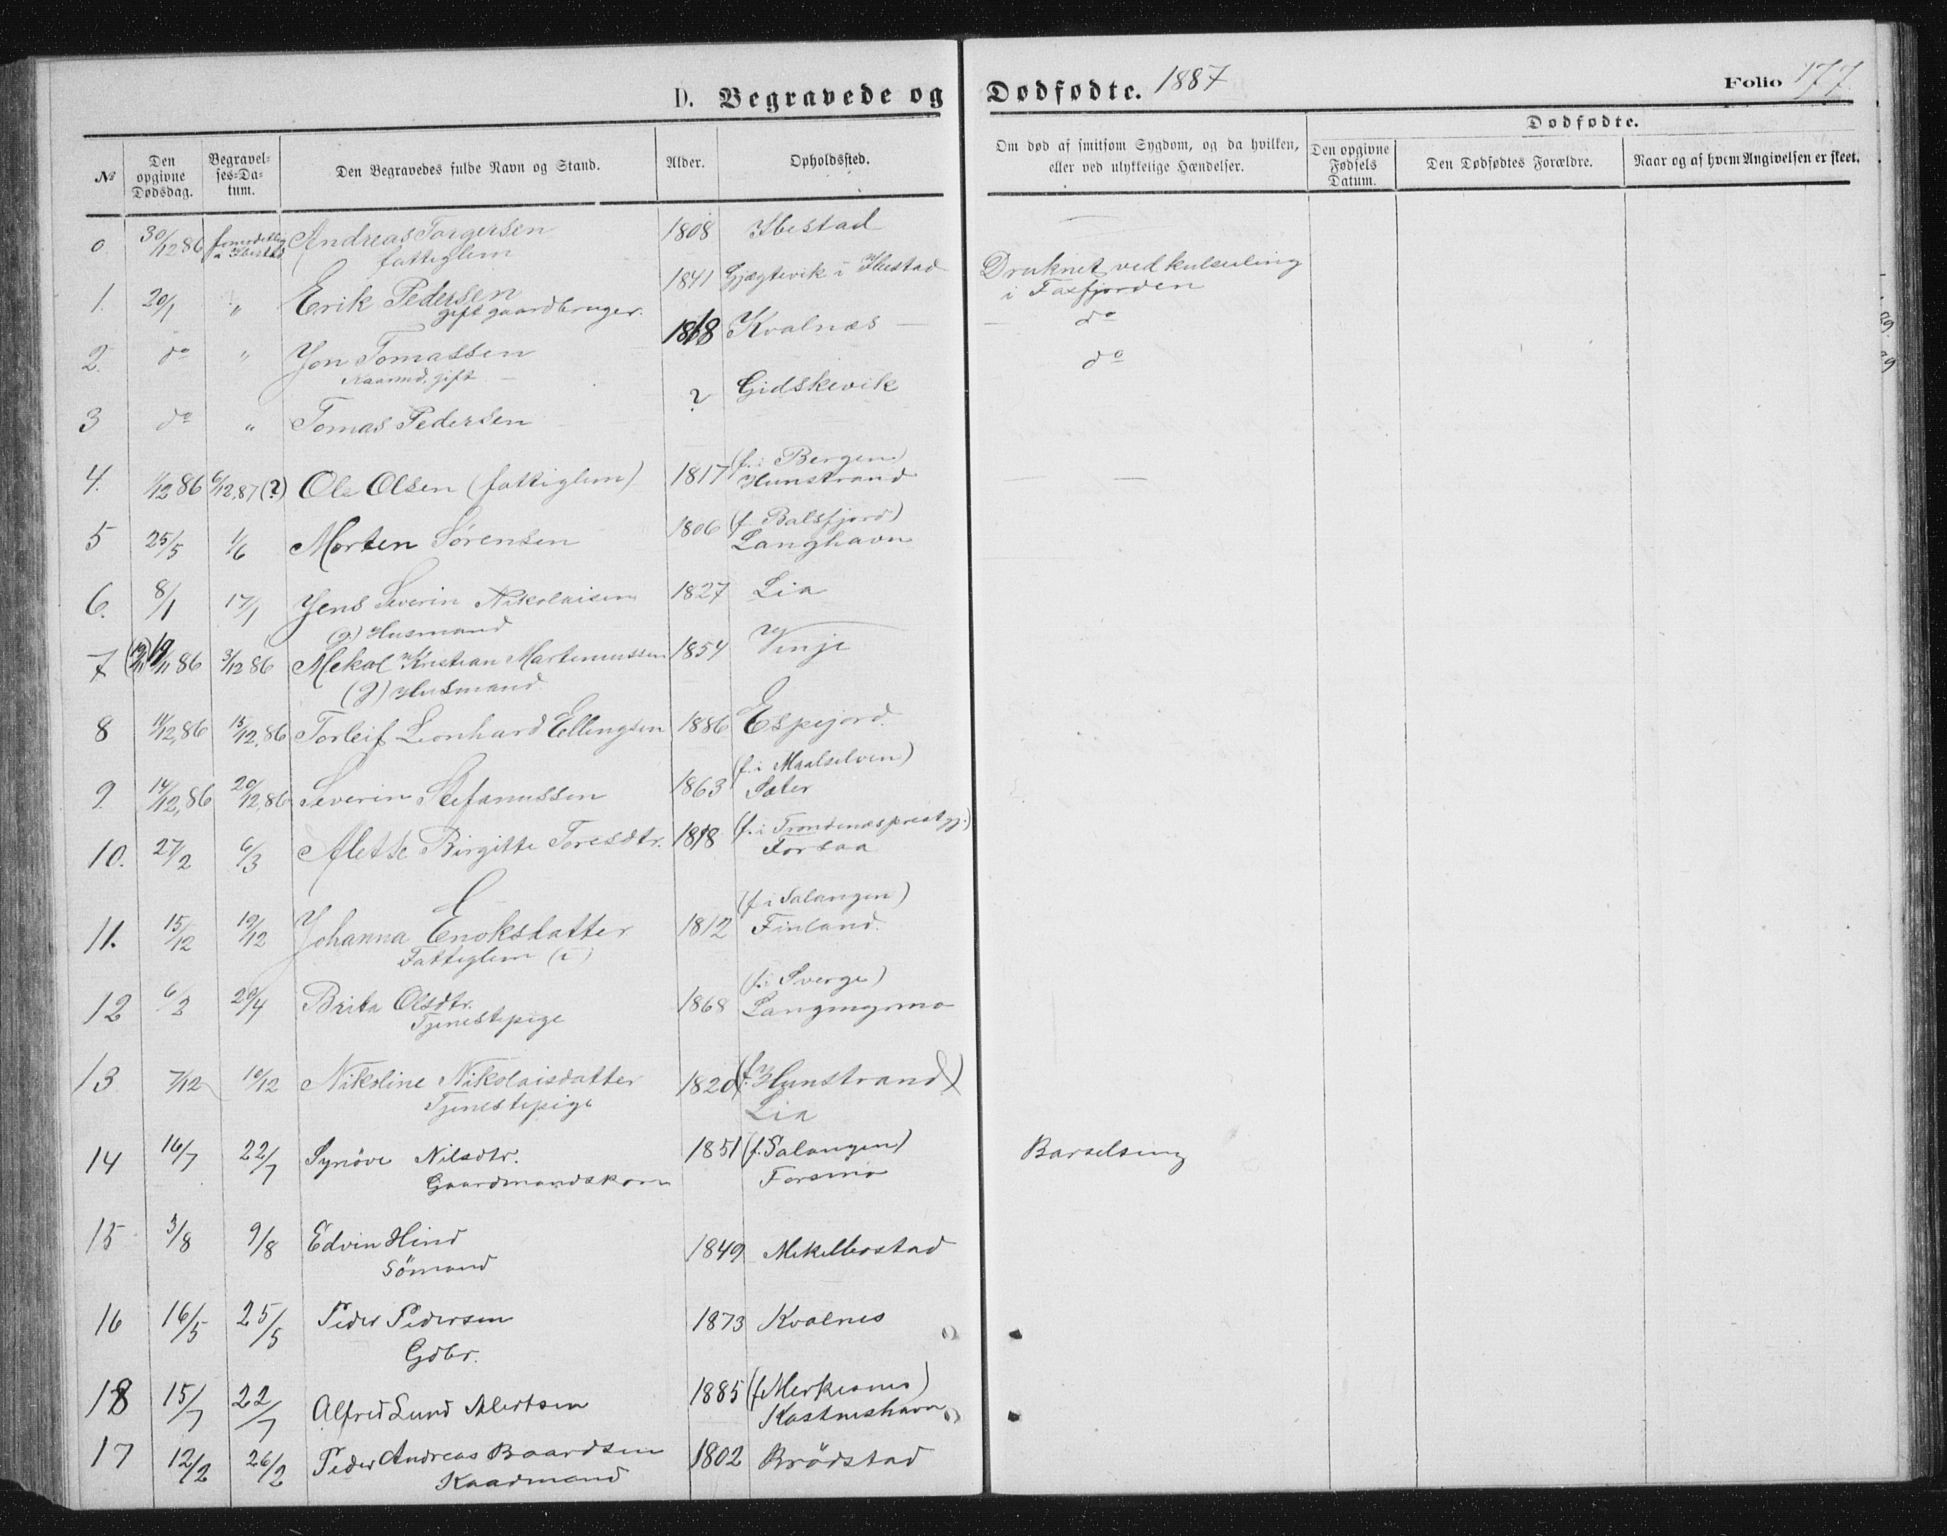 D. Begravede og Dødfødte. 1887 Folio 177.
Dødfødte.
№ Den opgivne Dødsdag. Begravel-ses-Da-tum. Den Begravedes fulde Navn og Stand. Alder. Opholdssted. Om død af smitsom Sygdom, og da hvilken, eller ved ulykkelige Hændelser. Den opgivne Fødsels Datum. Den Dødfødtes Forældre. Naar og af hvem Angivelsen er skeet.
0 30/12 86 Ibestad Andreas Torgersen 1808 Ibestad —
fattiglem
1. 20/1 " Erik Pedersen 1841 Gjægtevik i Ibestad Druknet ved kulseiling
gift gaardbruger. i Faxfjorden
2. do " Jon Tomassen 1818 Kvalnæs — do
Kaarmd. gift —
3 do " Tomas Pedersen ? Gidskevik do
4. 1/12 86 6/12,87 (?) Ole Olsen (fattiglem) 1817 (f. i Bergen)
Hunstrand —
5 25/5 1/6 Morten Sørensen 1806 (f. Balsfjord)
Langhavn
6. 8/1 17/1 Jens Severin Nikolaisen 1827 Lia
(g) Husmand
7 19/11 86 3/12 86 Mekal Kristian Martinussen 1854 Vinje
(g) Husmand
8 11/12,86 15/12,86 Torleif Leonhard Ellingsen 1886 Espejord.
9 14/12,86 20/12,86 Severin Stefanussen 1863 (f. i Maalselven)
Sæter
10. 27/2 6/3 Aletse Birgitte Toresdtr. 1818 (f. i Trondenæs prestgj.)
Forsaa
11. 15/12 19/12 Johanna Enoksdatter 1812 (f i Salangen)
Finland.
Fattiglem
12 6/3 20/4 Brita Olsdtr. 1868 (f. i Sverge)
Tjenestepige Langmyrmo
13 7/12 10/12 Nikoline Nikolaisdatter 1820 (f. Hunstrand)
Tjenestepige Lia
14 16/7 22/7 Synöve Nilsdtr. 1851 (f. Salangen) Barselseng
Gaardmandskone Forsmo
15 3/8 9/8 Edvin Hind 1849 Mikkelbostad
Sömand
16 16/5 25/5 Peder Pedersen 1873 Kvalnes
Gdbr.
18 15/7 22/7 Alfred Lund Albertsen 1885 (f Merkesnes)
Kastneshavn
17 12/2 26/2 Peder Andreas Baardsen 1802 Brödstad
Kaadmand